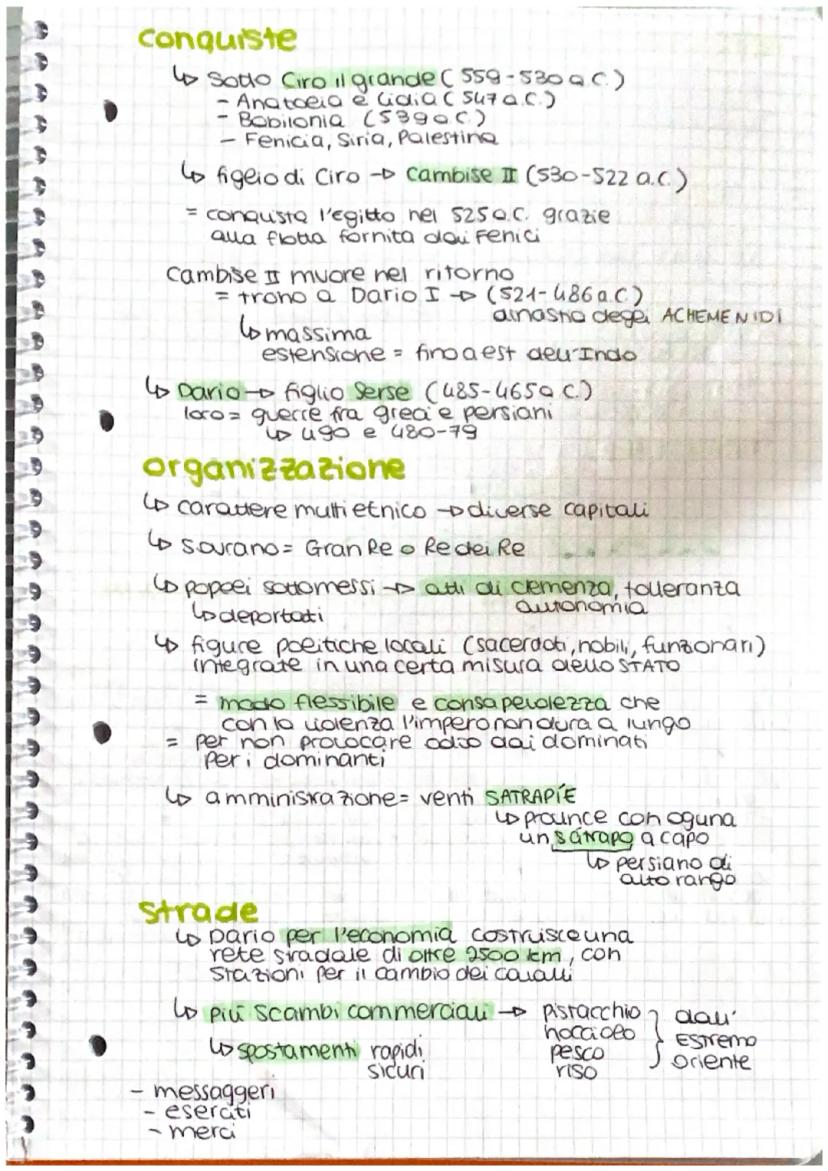 conquiste
↳ Sotto Ciro il grande (559-530 a.C.)
- Anatolia e Lidia (547 a.C.)
- Babilonia (539 a.C.)
- Fenicia, Siria, Palestina
↳ figlio di Ciro → Cambise II (530-522 a.C.)
= conquista l'egitto nel 525 a.C. grazie
alla flotta fornita dai Fenici
Cambise II muore nel ritorno
= trono a Dario I → (521-486 a.C)
dinastia degli ACHEMENIDI
↳ massima
estensione = fino a est dell'Indo
↳ Dario → figlio Serse (485-465 a.C.)
loro = guerre fra greci e persiani
↳ 490 e 480-79
organizzazione
↳ carattere multietnico → diverse capitali
↳ sovrano = Gran Re o Re dei Re
↳ popoli sottomessi → atti di clemenza, tolleranza
↳ deportati autonomia
↳ figure politiche locali (sacerdoti, nobili, funzionari)
integrate in una certa misura dello STATO
= modo flessibile e consapevolezza che
con la violenza l'impero non dura a lungo
= per non provocare odio dai dominati
per i dominanti
↳ amministrazione = venti SATRAPÍE
↳ province con oguna
un sátrapo a capo
↳ persiano di
alto rango
strade
↳ Dario per l'economia costruisce una
rete stradale di oltre 2500 km, con
stazioni per il cambio dei cavalli
↳ più scambi commerciali → pistacchio
nocciolo
pesco
riso
} dall'
Estremo
Oriente
↳ spostamenti rapidi
sicuri
- messaggeri
- eserciti
- merci